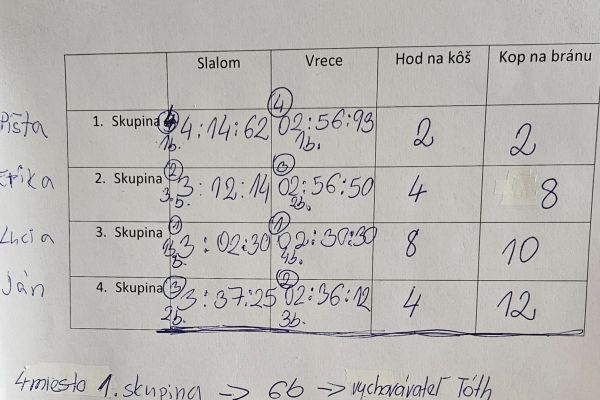 Slalom Vrece Hod na kôš Kop na bránu
④ ④
Pišta 1. Skupina 4:14:62 02:56:93 2 2
1b. 1b.
② ③
Erika 2. Skupina 3:12:14 02:56:50 4 8
3.b. 2b.
① ①
Lucia 3. Skupina 3:02:30 02:30:30 8 10
4b.
③ ②
Ján 4. Skupina 3:37:25 02:36:12 4 12
2b. 3b.
4 miesto 1. skupina -> 6b -> vychovávateľ Tóth